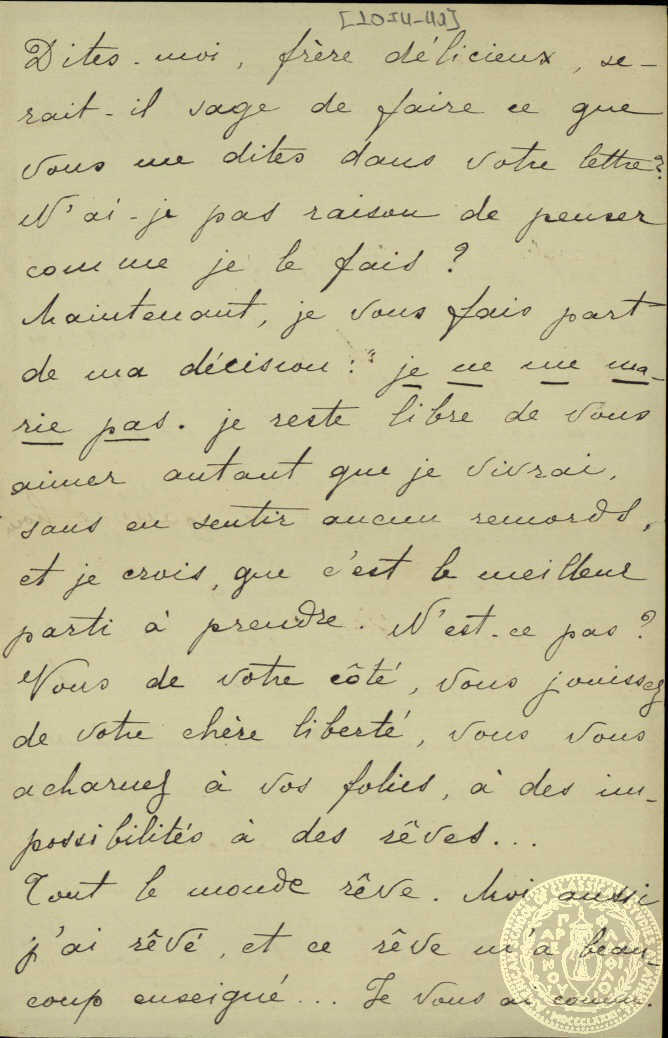 Dites-moi, frère délicieux, se-
rait-il sage de faire ce que
vous me dites dans votre lettre?
N'ai-je pas raison de penser
comme je le fais?
Maintenant, je vous fais part
de ma décision: "je ne me ma-
rie pas. je reste libre de vous
aimer autant que je vivrai,
sans en sentir aucun remords,
et je crois, que c'est le meilleur
parti à prendre. N'est-ce pas?
Vous de votre côté, vous jouissez
de votre chère liberté, vous vous
acharnez à vos folies, à des im-
possibilités à des rêves...
Tout le monde rêve. Moi aussi
j'ai rêvé, et ce rêve m'a beau-
coup enseigné... Je vous ai connu.